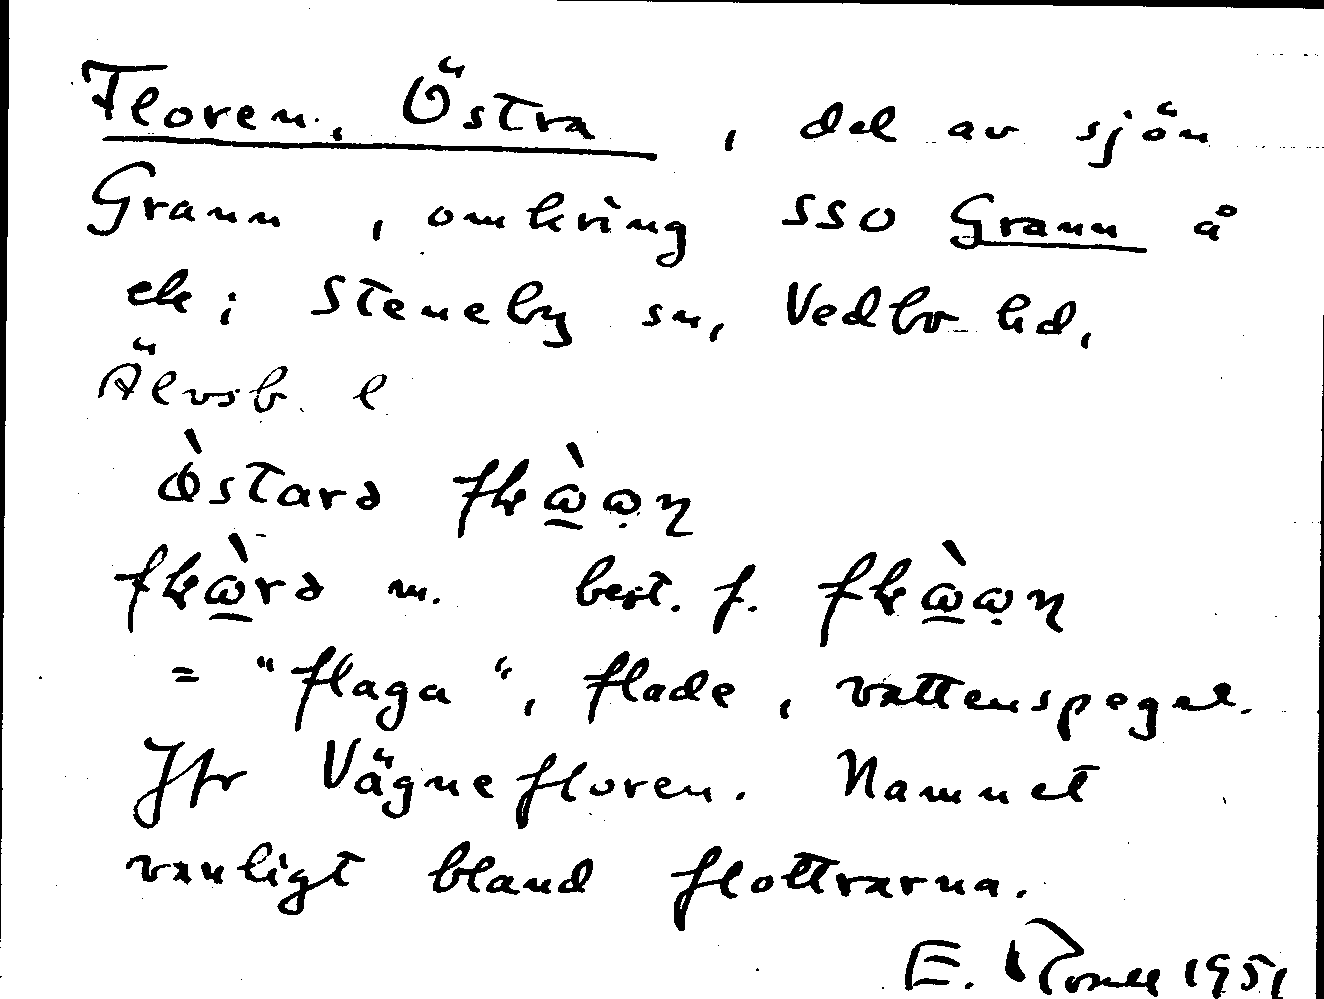 Floren, Östra, del av sjön
Grann, omkring SSO Grann å
ek; Steneby sn, Vedbo hd,
Älvsb. l
farə m. best. f.
= "flaga", flade, vattenspegel.
Jfr Vägnefloren. Namnet
vanligt bland flottrarna.
E. 1951